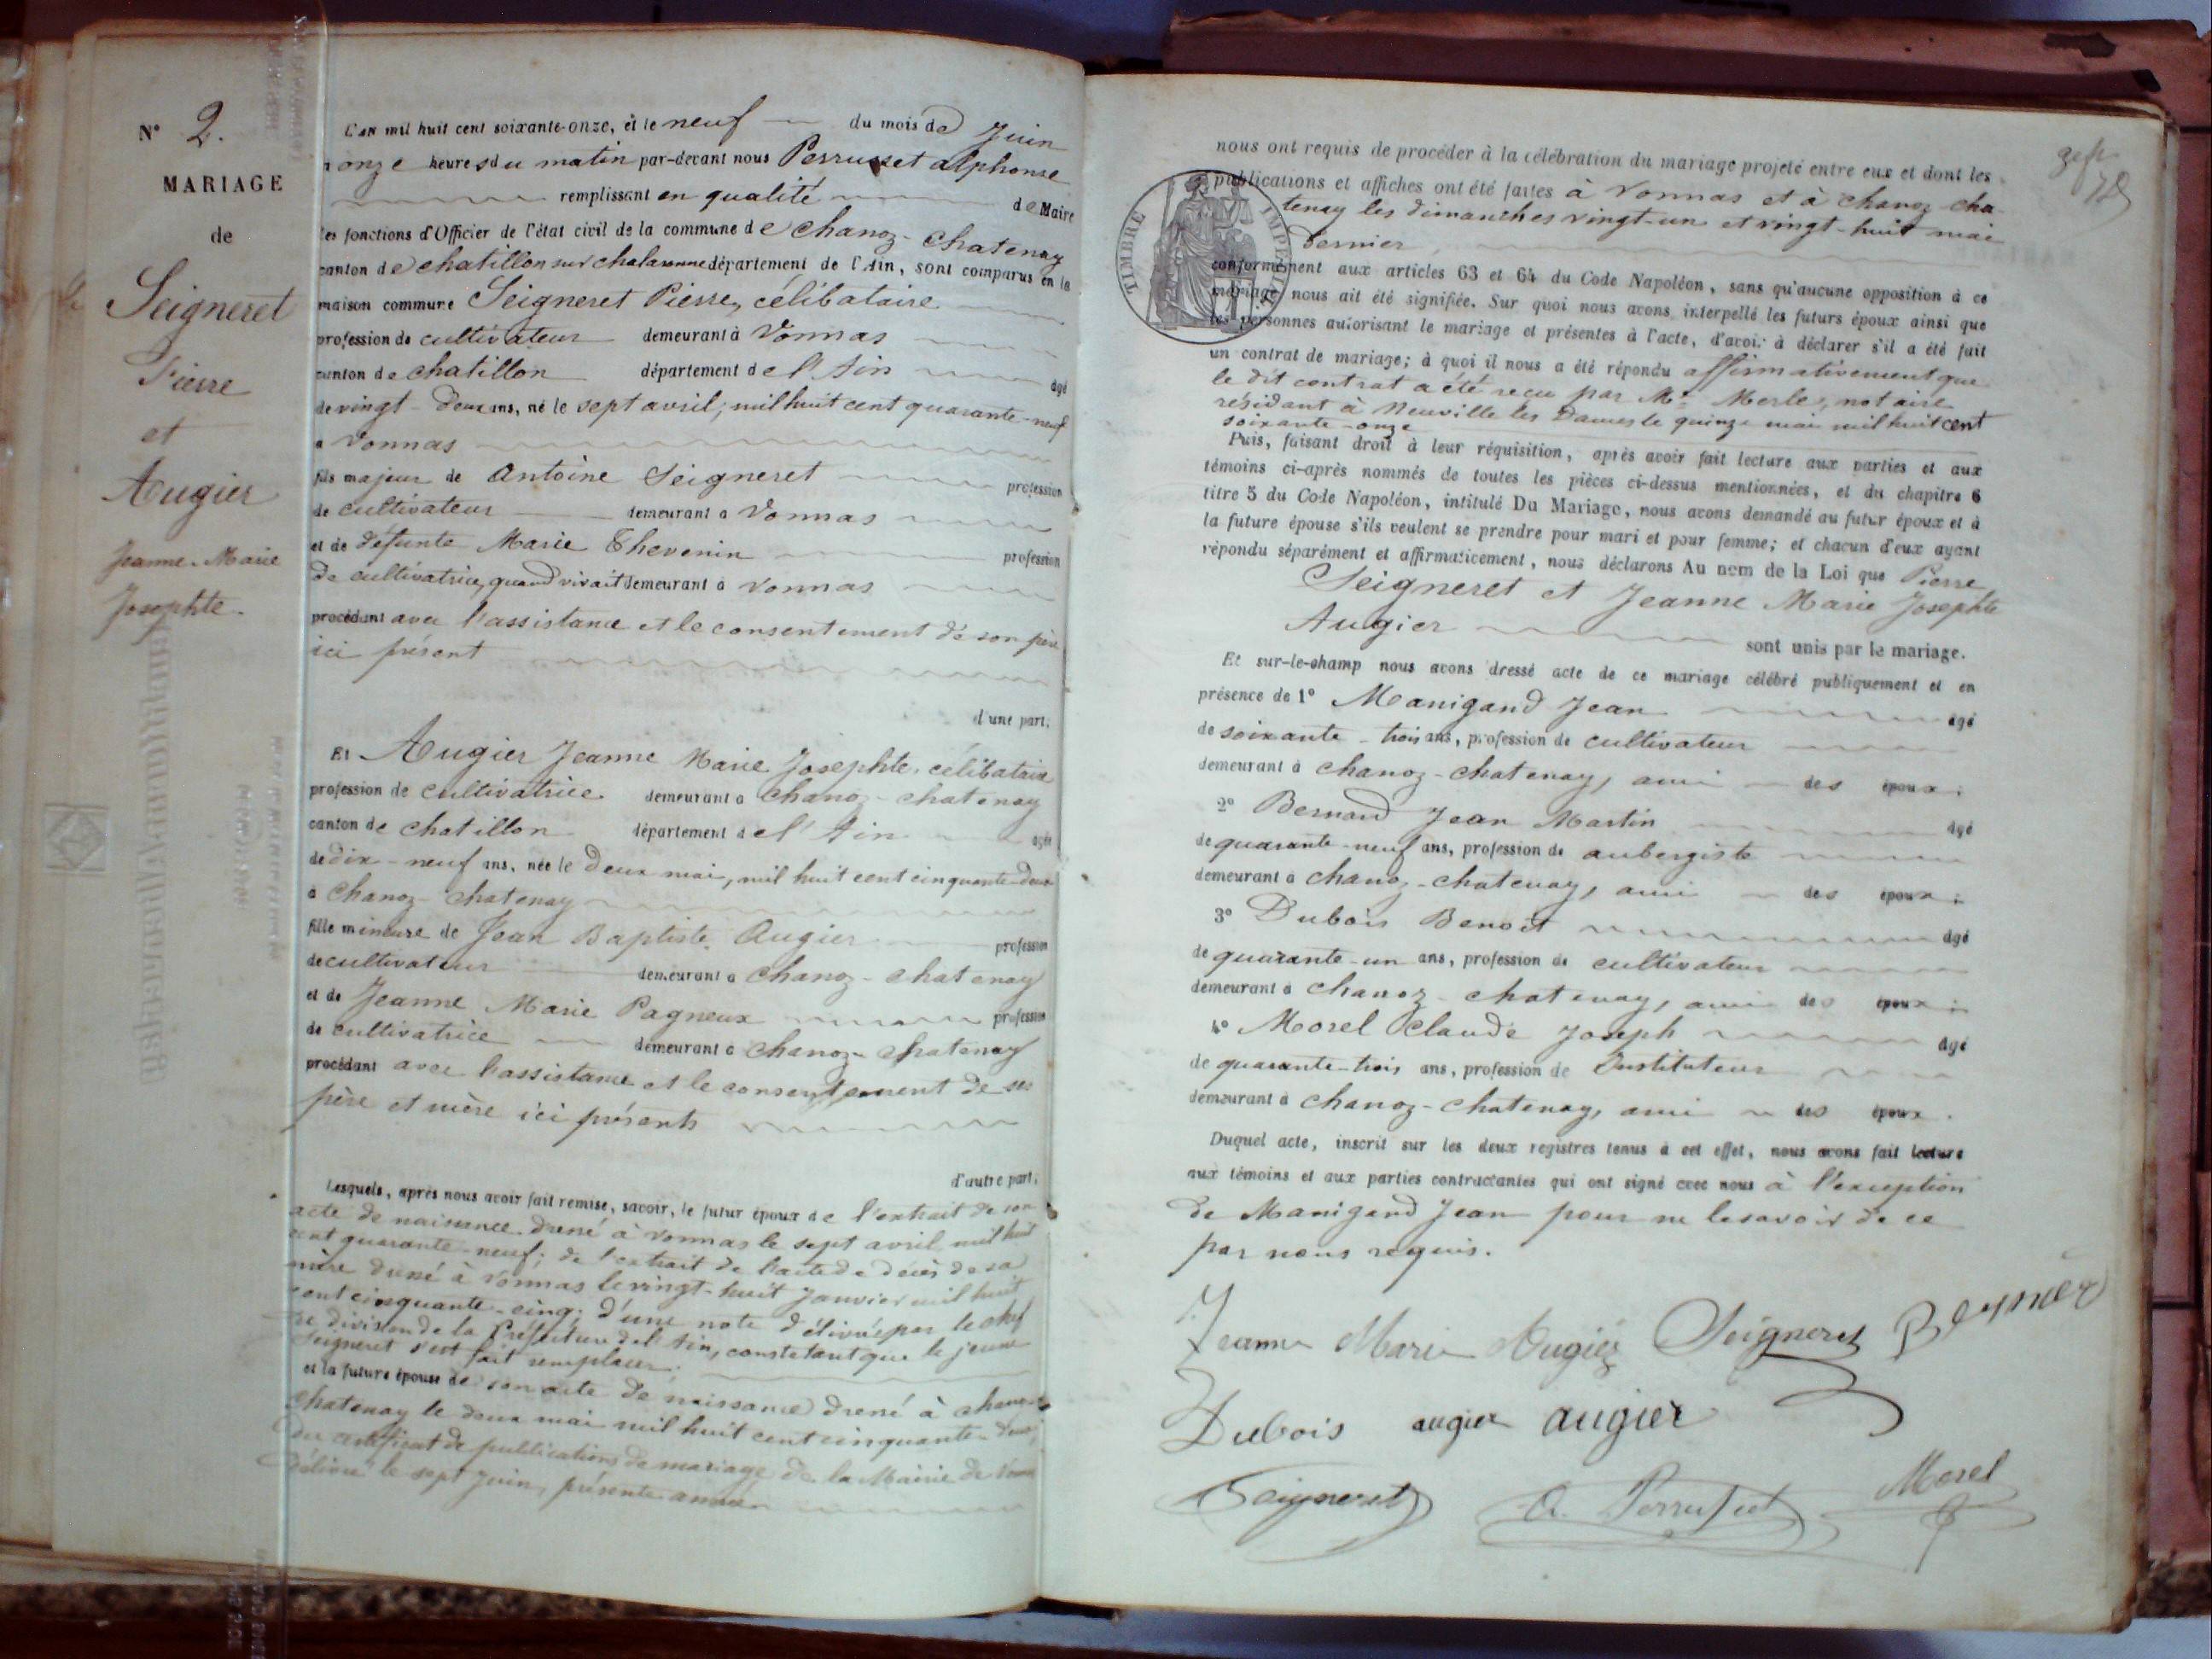 N° 2.
MARIAGE
de
Seigneret
Pierre
et
Augier
Jeanne-Marie
Josephte.
L'an mil huit cent soixante-onze, et le neuf du mois de Juin
à onze heures du matin par-devant nous Perrusset alphonse
remplissant en qualité de Maire
les fonctions d'Officier de l'état civil de la commune de Chanoz-Chatenay
canton de chatillon sur chalaronne département de l'Ain, sont comparus en la
maison commune Seigneret Pierre, célibataire
profession de cultivateur demeurant à Vonnas
canton de chatillon département de l'Ain âgé
de vingt-deux ans, né le sept avril, mil huit cent quarante-neuf
à Vonnas
fils majeur de Antoine Seigneret profession
de cultivateur demeurant à Vonnas
et de défunte Marie Thevenin profession
de cultivatrice, quand vivait demeurant à Vonnas
procédant avec l'assistance et le consentement de son père
ici présent
d'une part,
Et Augier Jeanne Marie Josephte, célibataire
profession de cultivatrice demeurant à Chanoz-chatenay
canton de chatillon département de l'Ain agée
de dix-neuf ans, née le deux mai, mil huit cent cinquante-deux
à Chanoz-chatenay
fille mineure de Jean Baptiste Augier profession
de cultivateur demeurant à Chanoz-chatenay
et de Jeanne Marie Pagneux profession
de cultivatrice demeurant à Chanoz-chatenay
procédant avec l'assistance et le consentement de ses
père et mère ici présents
d'autre part,
Lesquels, après nous avoir fait remise, savoir, le futur époux de l'extrait de son
acte de naissance dressé à Vonnas le sept avril mil huit
cent quarante-neuf; de l'extrait de l'acte de décès de sa
mère dressé à Vonnas le vingt-huit Janvier mil huit
cent cinquante-cinq; d'une note délivrée par le chef
de division de la Préfecture de l'Ain, constatant que le jeune
Seigneret s'est fait remplacer.
et la future épouse de son acte de naissance dressé à chanoz-
chatenay le deux mai mil huit cent cinquante-deux,
du certificat de publications de mariage de la Mairie de Vonnas
délivré le sept Juin, présente année
nous ont requis de procéder à la célébration du mariage projeté entre eux et dont les
publications et affiches ont été faites à Vonnas et à chanoz-cha-
tenay les dimanches vingt-un et vingt-huit mai
dernier
TIMBRE IMPERIAL
conformément aux articles 63 et 64 du Code Napoléon, sans qu'aucune opposition à ce
mariage nous ait été signifiée. Sur quoi nous avons interpellé les futurs époux ainsi que
les personnes autorisant le mariage et présentes à l'acte, d'avoir à déclarer s'il a été fait
un contrat de mariage; à quoi il nous a été répondu affirmativement que
le dit contrat a été reçu par Me Merle, notaire
résidant à Neuville les Dames le quinze mai mil huit cent
soixante-onze
Puis, faisant droit à leur réquisition, après avoir fait lecture aux parties et aux
témoins ci-après nommés de toutes les pièces ci-dessus mentionnées, et du chapitre 6
titre 5 du Code Napoléon, intitulé Du Mariage, nous avons demandé au futur époux et à
la future épouse s'ils veulent se prendre pour mari et pour femme; et chacun d'eux ayant
répondu séparément et affirmativement, nous déclarons Au nom de la Loi que Pierre
Seigneret et Jeanne Marie Josephte
Augier sont unis par le mariage.
Et sur-le-champ nous avons dressé acte de ce mariage célébré publiquement et en
présence de 1° Manigand Jean âgé
de soixante-trois ans, profession de cultivateur
demeurant à Chanoz-chatenay, ami des époux;
2° Bernard Jean Martin âgé
de quarante-neuf ans, profession de aubergiste
demeurant à Chanoz-chatenay, ami des époux;
3° Dubois Benoît âgé
de quarante-un ans, profession de cultivateur
demeurant à Chanoz-chatenay, ami des époux;
4° Morel Claude Joseph âgé
de quarante-trois ans, profession de Instituteur
demeurant à Chanoz-chatenay, ami des époux.
Duquel acte, inscrit sur les deux registres tenus à cet effet, nous avons fait lecture
aux témoins et aux parties contractantes qui ont signé avec nous à l'exception
de Manigand Jean pour ne le savoir de ce
par nous requis.
Jeanne Marie Augier Seigneret
Dubois augier augier
Seigneret A. Perrusset Morel